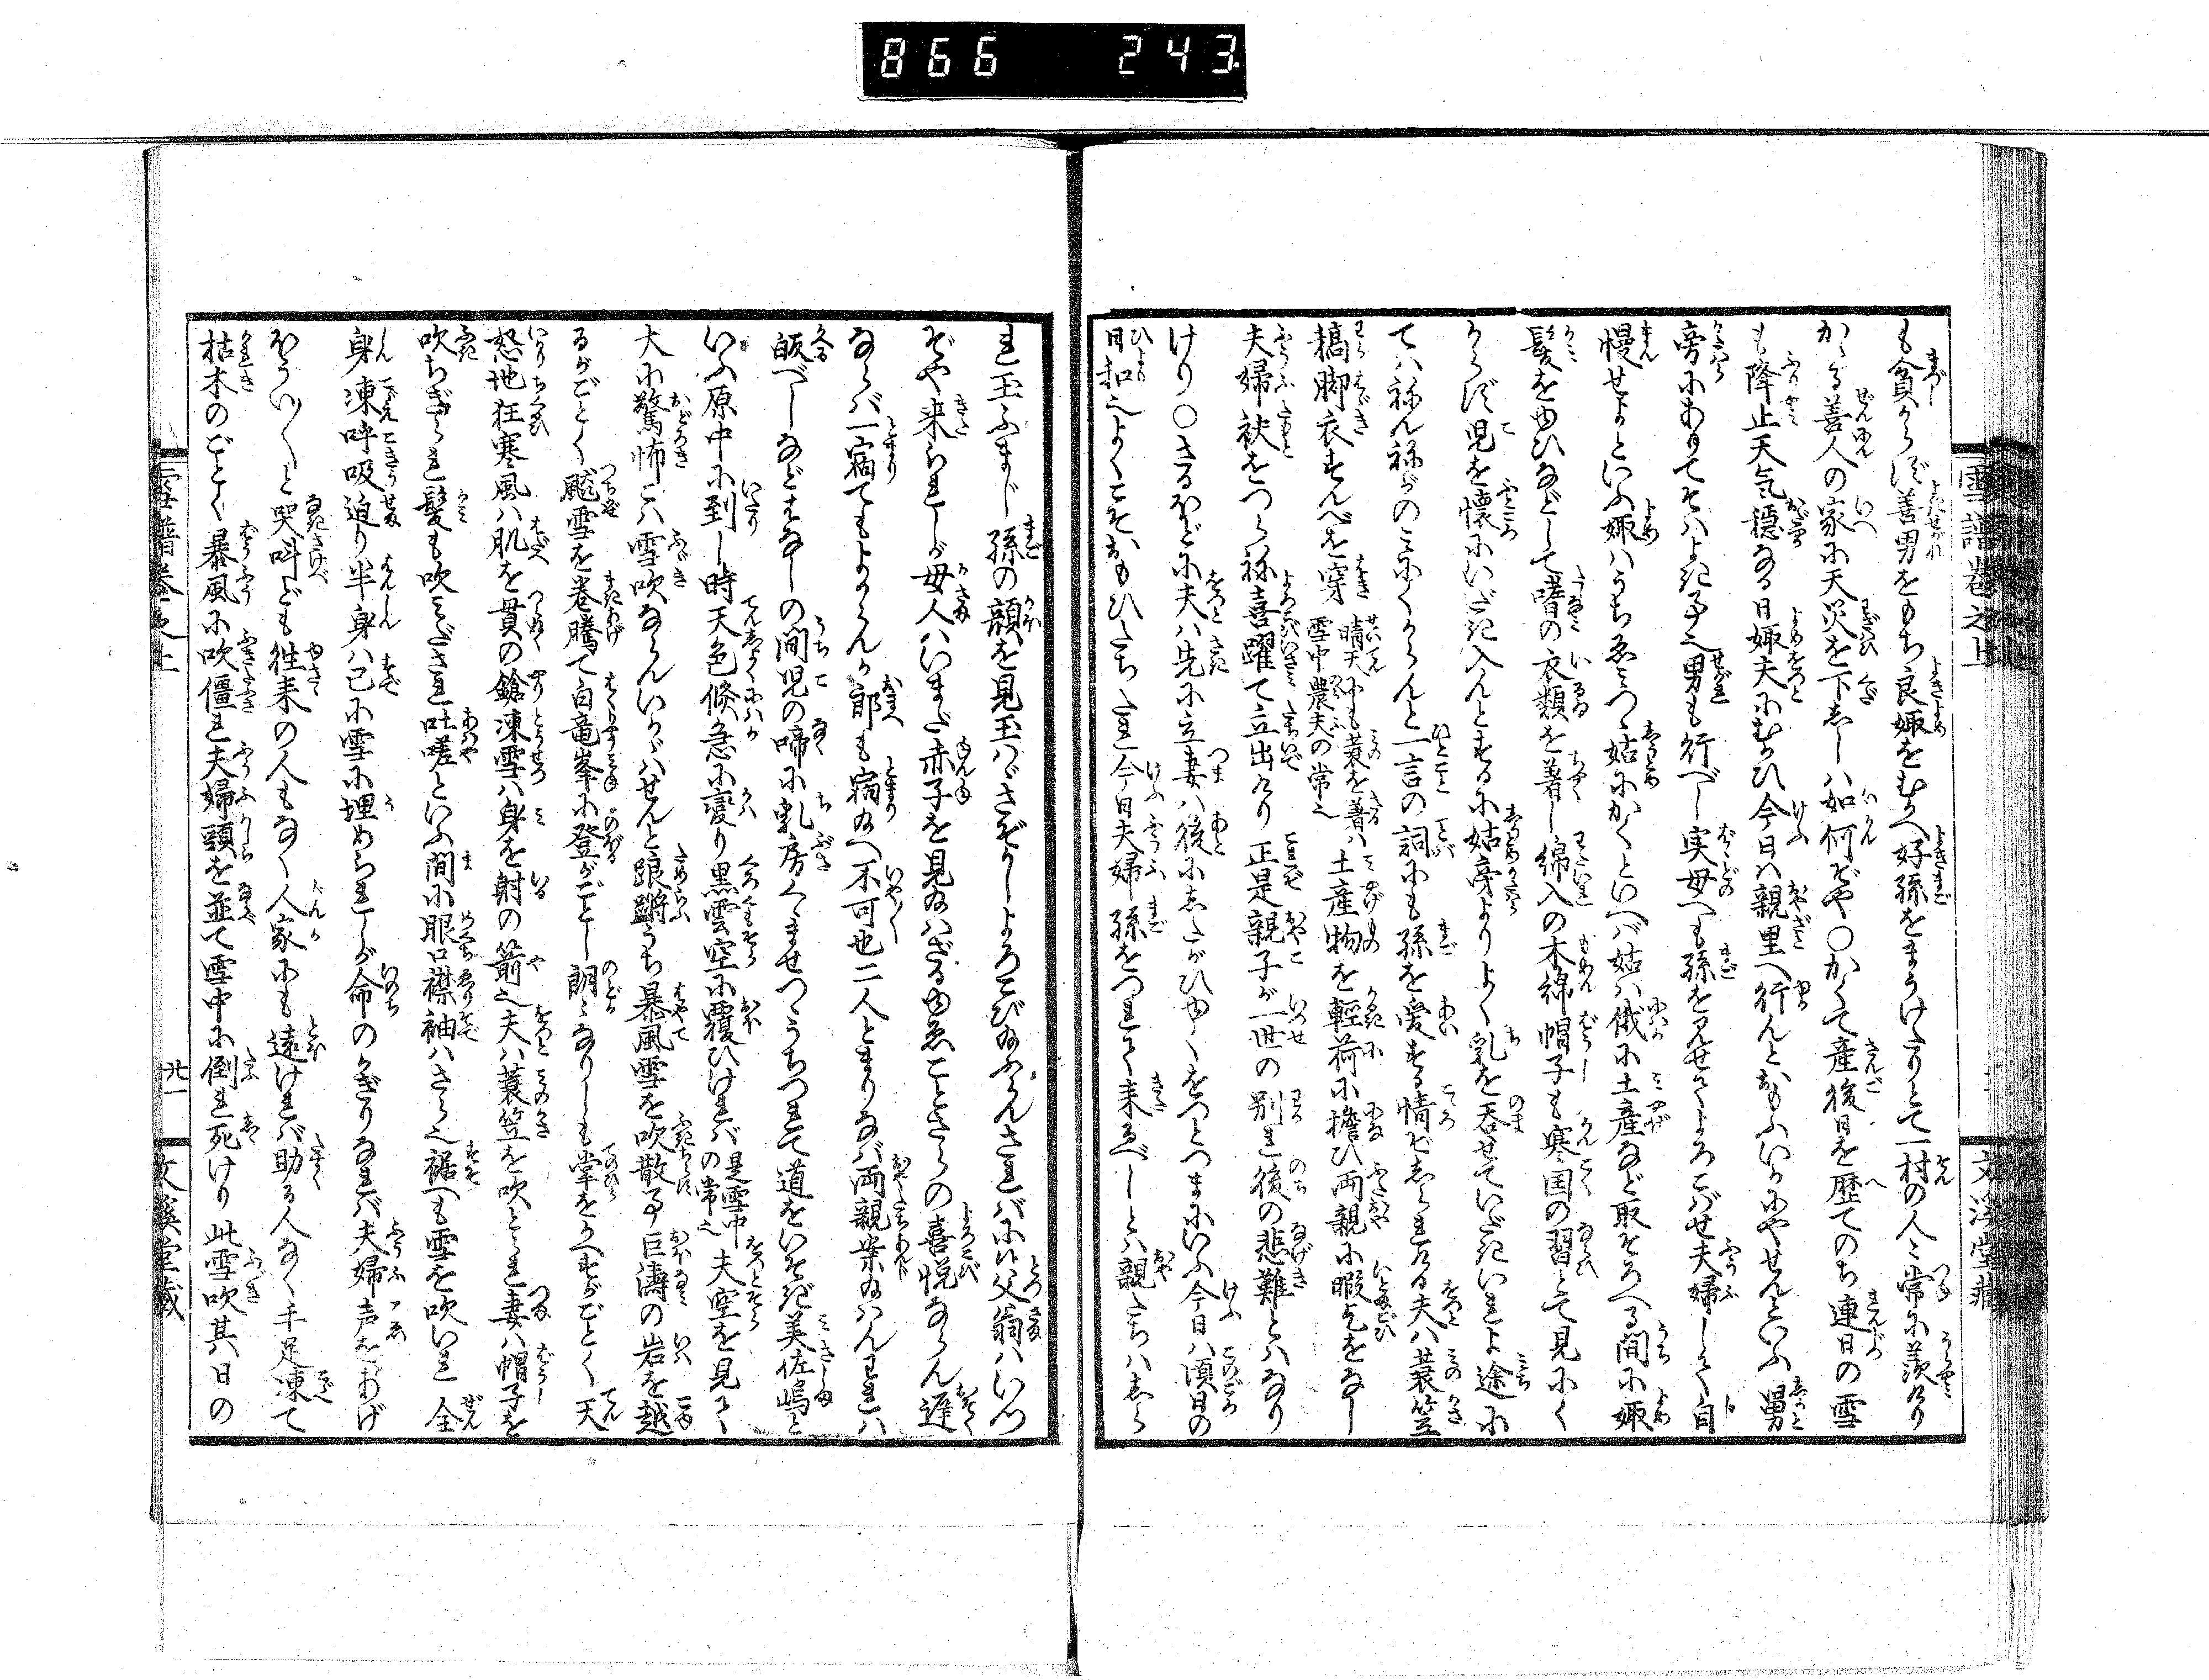 866 243
雪譜巻之上
文溪堂藏
も貧からず善男をもち良娵をむかへ好孫をまうけたりとて一村の人々常に羨けり
かゝる善人の家に天災を下ししは如何ぞや○かくて産後日を歴てのち連日の雪
も降止天気穏なる日娵夫にむかひ今日は親里へ行んとおもふいかにやせんといふ舅
旁にありてそはよき事也男も行べし実母へも孫を見せてよろこばせ夫婦して自
慢せよといふ娵はうちゑみつゝ姑にかくといへば姑は俄に土産など取そろへる間に娵
髪をゆひなどして嗜の衣類を着し綿入の木綿帽子も寒国の習とて見にく
からず児を懐にいだき入んとするに姑旁よりよく乳を呑せていだきいれよ途に
てはねんねがのみにくからんと一言の詞にも孫を愛する情ぞしられける夫は蓑笠
稿脚衣すんべを穿晴天にも蓑を着は雪中農夫の常也土産物を軽荷に担ひ両親に暇乞をなし
夫婦袂をつらね喜躍て立出けり正是親子が一世の別れ後の悲難とはなり
けり○さるほどに夫は先に立妻は後にしたがひゆくをつとつまにいふ今日は頃日の
日和也よくこそおもひたちたれ今日夫婦孫をつれて来るべしとは親たちはしら
れ玉ふまじ孫の顔を見玉はゞさぞかしよろこび給ふらんさればに候父翁はいつ
ぞや来られしが母人はいまだ赤子を見給はざるゆゑことさらの喜悦ならん遅
ならば一宿てもよからんか郎も宿給へ不可也二人とまりなば両親案給はんわれは
皈べしなどはなしの間児の啼に乳房くゝませつゝうちつれて道をいそぎ美佐嶋と
いふ原中に到し時天色倏急に変り黒雲空に覆ひければ是雪中の常也夫空を見て
大に驚怖こは雪吹ならんいかゞはせんと踉蹡うち暴風雪を吹散事巨濤の岩を越
るがごとく飇雪を巻騰て白竜峯に登がごとし朗々なりしも掌をかへすがごとく天
怒地狂寒風は肌を貫の鎗凍雪は身を射の箭也夫は蓑笠を吹とられ妻は帽子を
吹ちぎられ髪も吹みだされ吐嗟といふ間に眼口襟袖はさら也裾へも雪を吹いれ全
身凍呼吸迫り半身は已に雪に埋められしが命のかぎりなれば夫婦声をあげ
ほうい〳〵と哭叫ども往来の人もなく人家にも遠ければ助る人なく手足凍て
枯木のごとく暴風に吹僵れ夫婦頭を並て雪中に倒れ死けり此雪吹其日の
雪譜巻之上
廿一
文溪堂藏